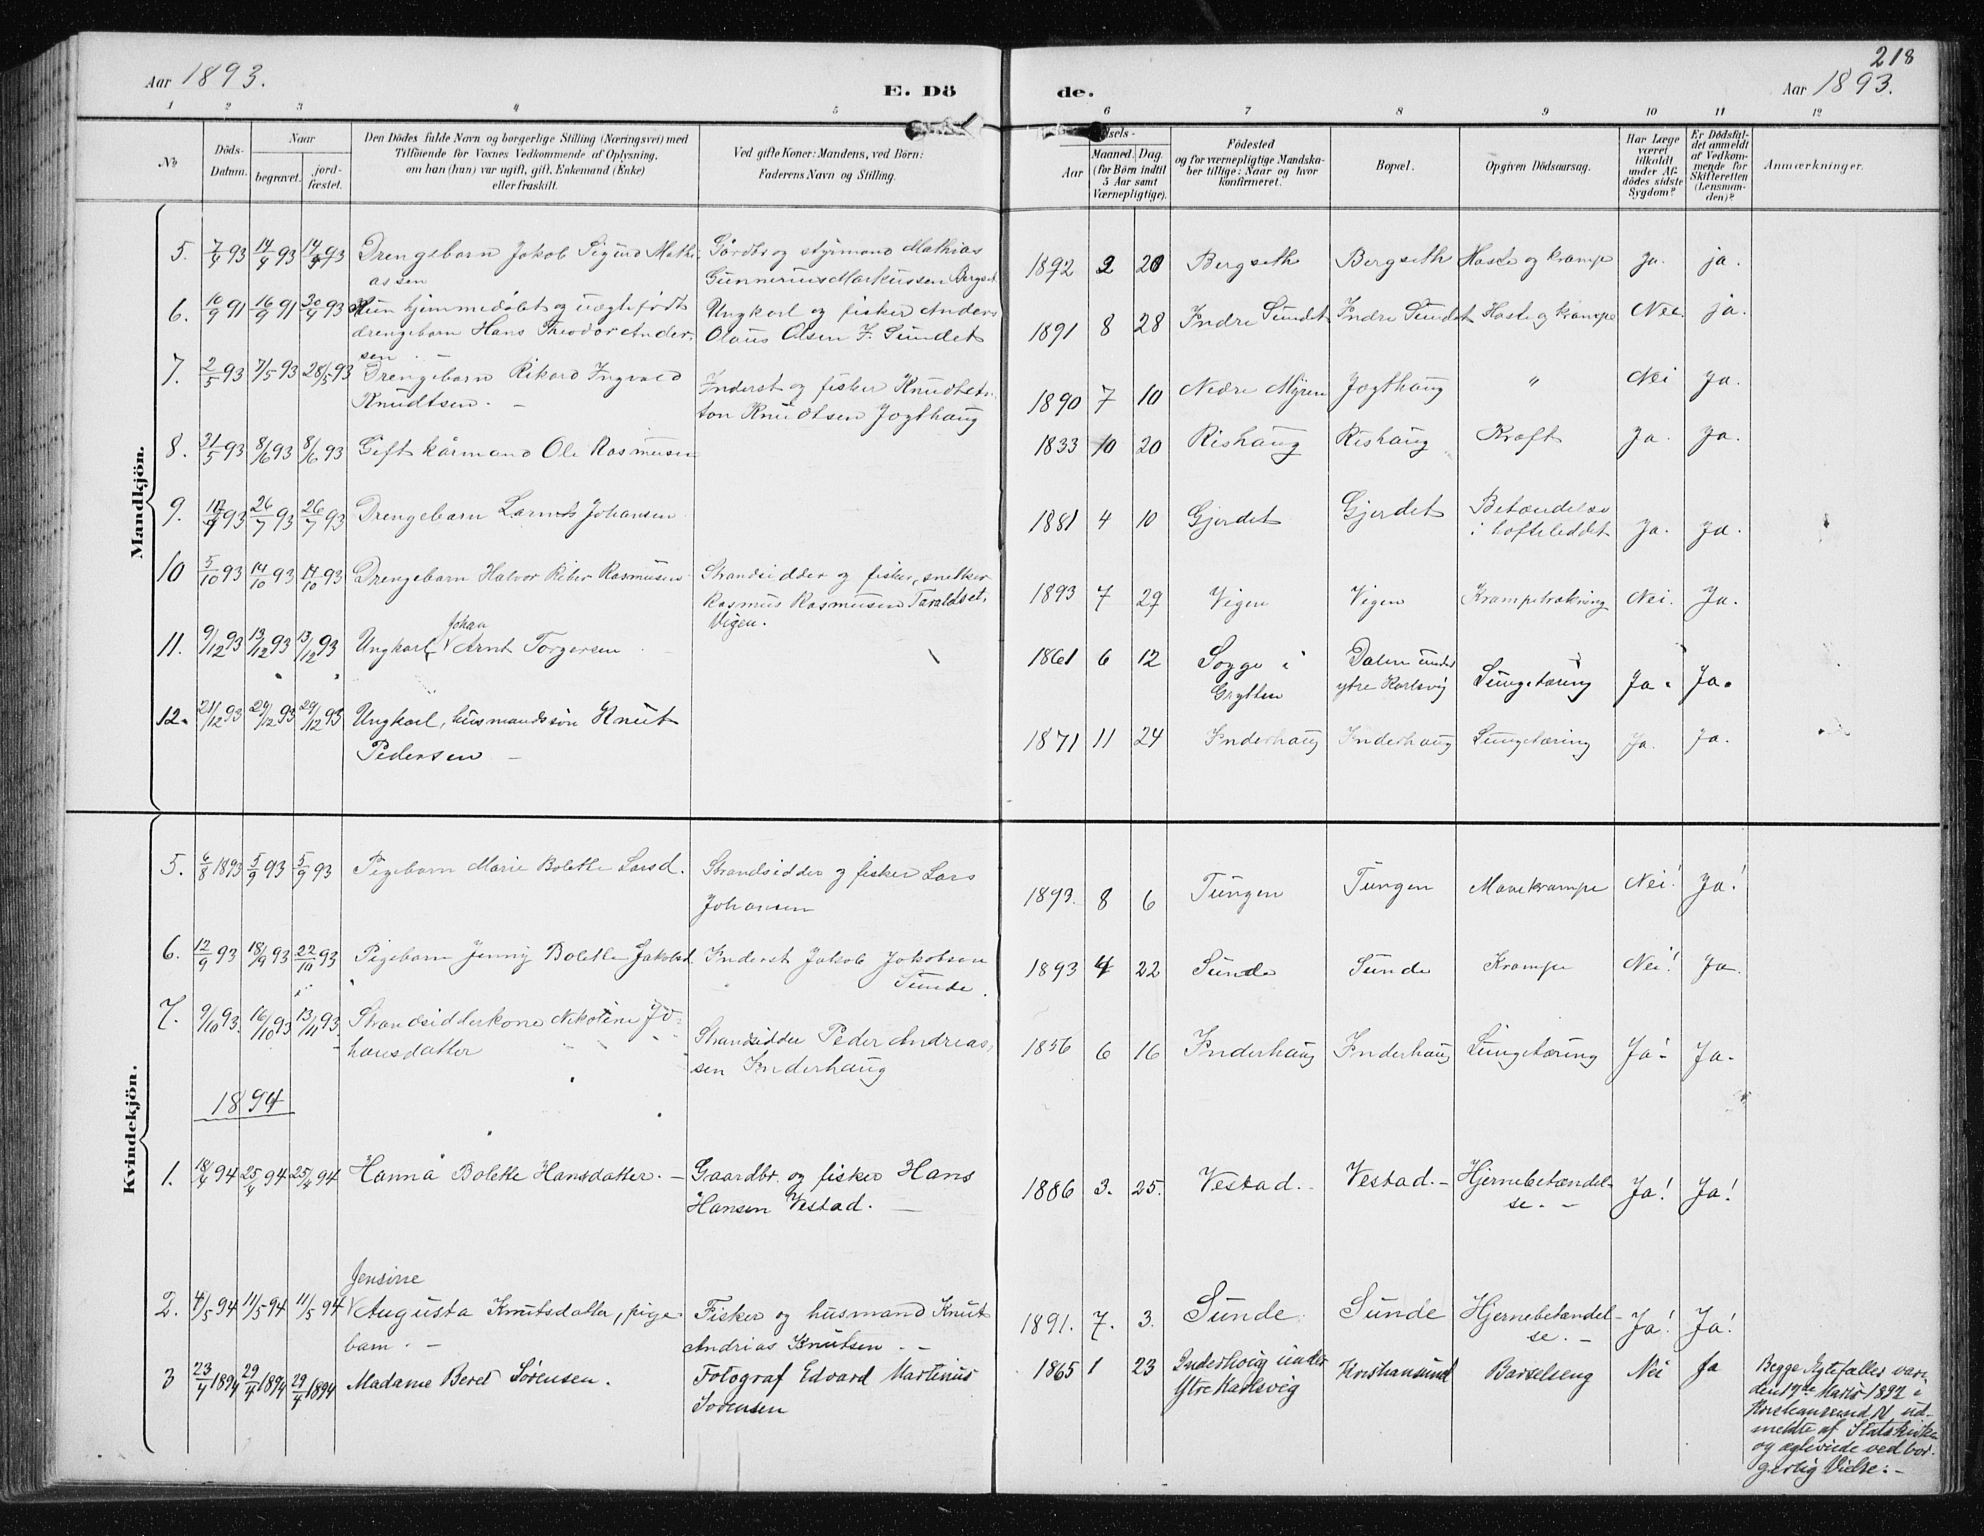 218
Aar 1893.
E. Dö de.
Aar 1893.
1 2 3 4 5 6 7 8 9 10 11 12
No
Döds-
Datum.
Naar
begravet.
jord-
fæstet.
Den Dödes fulde Navn og borgerlige Stilling (Næringsvei) med
Tilföiende for Voxnes Vedkommende af Oplysning,
om han (hun) var ugift, gift, Enkemand (Enke)
eller fraskilt.
Ved gifte Koner: Mandens, ved Börn:
Faderens Navn og Stilling.
dsels-
Aar
Maaned. Dag.
(for Børn indtil
5 Aar samt
Værnepligtige).
Födested
og for værnepligtige Mandska-
ber tillige: Naar og hvor
konfirmeret.
Bopæl.
Opgiven Dödsaarsag.
Har Læge
været
tilkaldt
under Af-
dödes sidste
Sygdom?
Er Dödsfal-
det anmeldt
af Vedkom-
mende for
Skifteretten
(Lensman-
den)?
Anmærkninger.
Mandkjön.
5. 7/4 93 14/4 93 14/4 93 Drengebarn Jakob Sigurd Mathi- Gårdbr og styrmand Mathias 1892 2 20 Bergseth Bergseth Hoste og krampe Ja. ja.
assen Gunnerius Markussen Bergset
6. 10/9 91 16/9 91 30/4 93 hjemmedøbt og uægtefødt Ungkarl og fisker Anders 1891 8 28 Indre Sundet Indre Sundet Hoste og krampe Nei. ja.
drengebarn Hans Theodor Ander- Olaus Olsen I. Sundet
sen. -
7. 2/5 93 7/5 93 28/5 93 Drengebarn Rikard Ingvald Inderst og fisker Knudt 1890 7 10 Nedre Myren Jogthaug " Nei Ja.
Knudtsen. - Knudtsen Jogthaug
8. 31/5 93 8/6 93 8/6 93 Gift kårmand Ole Rasmusen 1833 10 20 Rishaug Rishaug Kræft Ja. Ja.
9. 93 26/7 93 26/7 93 Drengebarn Johansen 1881 4 10 Gjerdet Gjerdet Betændelse
i hofteleddet Ja. Ja.
10 5/10 93 14/10 93 14/10 93 Drengebarn Halvor Rasmusen Strandsidder og fisker, snekker 1893 7 29 Vigen Vigen Krampetrækning Nei. Ja.
Rasmus Rasmusen Taraldset,
Vigen.
Johan
11. 9/12 93 13/12 93 13/12 93 Ungkarl, Arnt Torgersen 1861 6 12 Sogge i Dalen under Lungetæring Ja. Ja.
Grytten ytre Karlsvig
12. 21/12 93 29/12 93 29/12 93 Ungkarl, husmandssøn Knut 1871 11 24 Inderhaug Inderhaug Lungetæring Ja. Ja.
Pedersen -
Kvindekjön.
5. 6/8 1893 5/9 93 5/9 93 Pigebarn Marie Bolette Larsd. Strandsidder og fisker Lars 1893. 8 6 Tungen Tungen Mavekrampe Nei! Ja!
Johansen
6. 12/9 93 18/9 93 22/10 93 Pigebarn Jenny Bolette Jakobsd. Inderst Jakob Jakobsen 1893 4 22 Sunde Sunde Krampe Nei! Ja.
Sunde.
7. 9/10 93. 16/10 93 13/11 93. Strandsidderkone Nikoline Jo- Strandsidder Peder Andreas- 1856 6 16 Inderhaug Inderhaug Lungetæring Ja- Ja.
hansdatter sen Inderhaug
1894
1. 18/4 94 25/4 94 25/4 94 Hanna Bolette Hansdatter. - Gaardbr. og fisker Hans 1886 3. 25. Vestad. Vestad.- Hjernebetændel- Ja! Ja!
Hansen Vestad. - se. -
Jensine
2. 4/5 94 11/5 94 11/5 94 Augusta Knutsdatter, pige- Fisker og husmand Knut 1891. 7. 3. Sunde Sunde Hjernebetændel- Ja! Ja!
barn. - Andrias Knutsen. - se. -
3 23/4 1894 29/4 1894 29/4 1894 Madame Beret Sørensen. Fotograf Edvard Martinus 1865 1 23 Inderhoug under Kristiansund Barselseng Nei Ja Begge Ægtefæller var
Sørensen Ytre Karlsvig den 17de Marts 1892 i
Kristiansund N ud-
meldte af Statskirken
og ægteviede ved bor-
gerlig Vielse: -